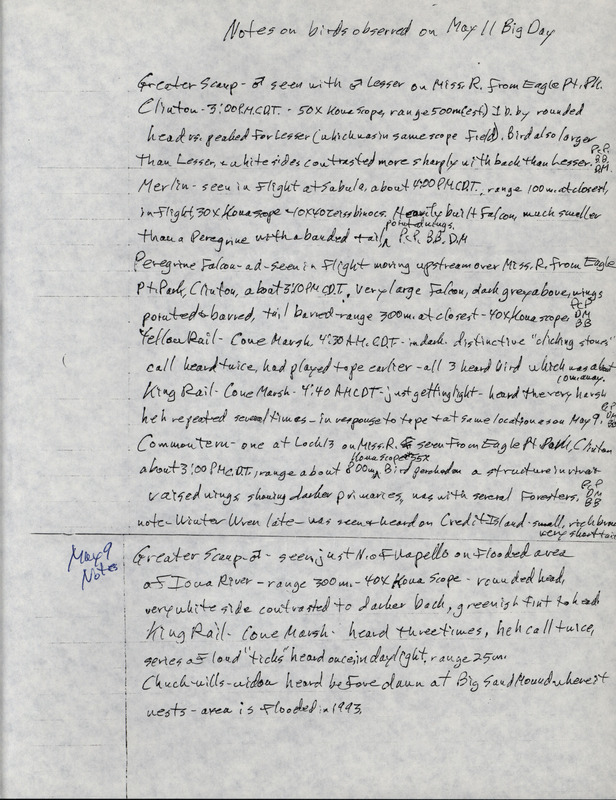 Notes on birds observed on May 11 Big Day
Greater Scaup - ♂ seen with ♂ Lesser on Miss. R. from Eagle Pt. Pk.
Clinton - 3:00 P.M. C.D.T. - 50X Kowa scope, range 500m (est) I.D. by rounded
head vs. peaked for Lesser (which was in same scope field). Bird also larger
than Lesser, & white sides contrasted more sharply with back than Lesser. P.C.P. B.B. D.M.
Merlin - seen in flight at Sabula, about 4:00 P.M. C.D.T., range 100 m. at closest,
in flight, 30X Kowa scope + 10X40 Zeiss binocs. Heavily built falcon, much smaller
than a Peregrine with a banded tail, pointed wings. P.C.P. B.B. D.M
Peregrine Falcon - ad - seen in flight moving upstream over Miss. R. from Eagle
Pt Park, Clinton, about 3:10 P.M. C.D.T., very large falcon, dark grey above, wings
pointed & barred, tail barred - range 300m. at closest - 40X Kowa scope P.C.P. D.M BB
Yellow Rail - Cone Marsh. 4:30 A.M. C.D.T - in dark. distinctive "clicking stones"
call heard twice, had played tape earlier - all 3 heard bird which was about 10m. away.
King Rail - Cone Marsh - 4:40 AM CDT - just getting light - heard the very harsh
keh repeated several times - in response to tape & at same location as on May 9. P.C.P. DM BB
Common tern - one at Loch 13 on Miss. R. seen from Eagle Pt Park, Clinton
about 3:00 P.M. C.D.T., range about 800m, Kowa scope 55X Bird perched on a structure in river
raised wings showing darker primaries, was with several Foresters. P.C.P. DM BB
note - Winter Wren late - was seen & heard on Credit Island - small, rich brown very short tail
May 9
Notes
Greater Scaup - ♂ - seen just N. of Wapello on flooded area
of Iowa River - range 300m. - 40X Kowa Scope - rounded head,
very white side contrasted to darker back, greenish tint to head
King Rail - Cone Marsh - heard three times, keh call twice,
series of loud "ticks" heard once, in daylight, range 25m.
Chuck-wills-widow heard before dawn at Big Sand Mound where it
nests - area is flooded in 1993.